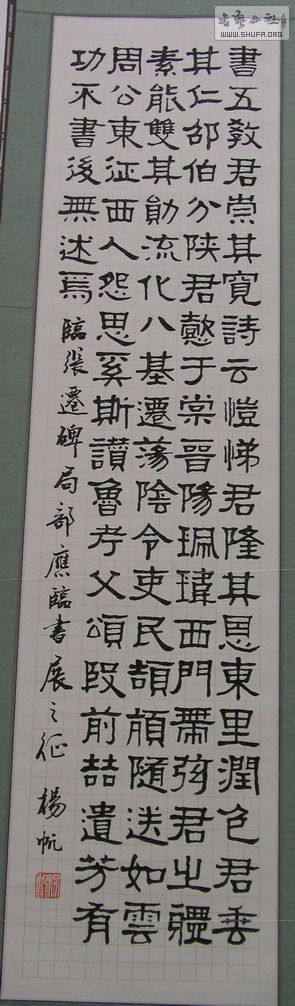 書藝公社
WWW.SHUFA.ORG
書五教君崇其寬詩云愷悌君隆其恩東里潤色君垂
其仁邵伯分陝君懿于棠晉陽珮瑋西門帶弦君之體
素能雙其勛流化八基遷蕩陰令吏民頡頏隨送如雲
周公東征西人怨思奚斯讚魯考父頌殷前喆遺芳有
功不書後無述焉 臨張遷碑局部應臨書展之征 楊帆